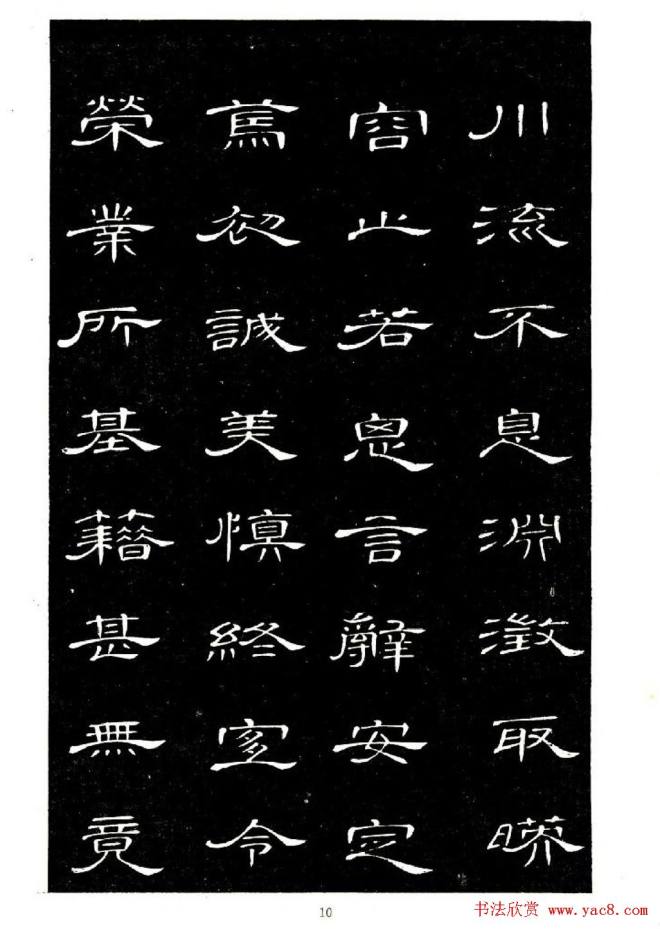 川流不息淵澂取暎
容止若思言辭安定
篤初誠美慎終宜令
榮業所基籍甚無竟
10
书法欣赏 www.yac8.com